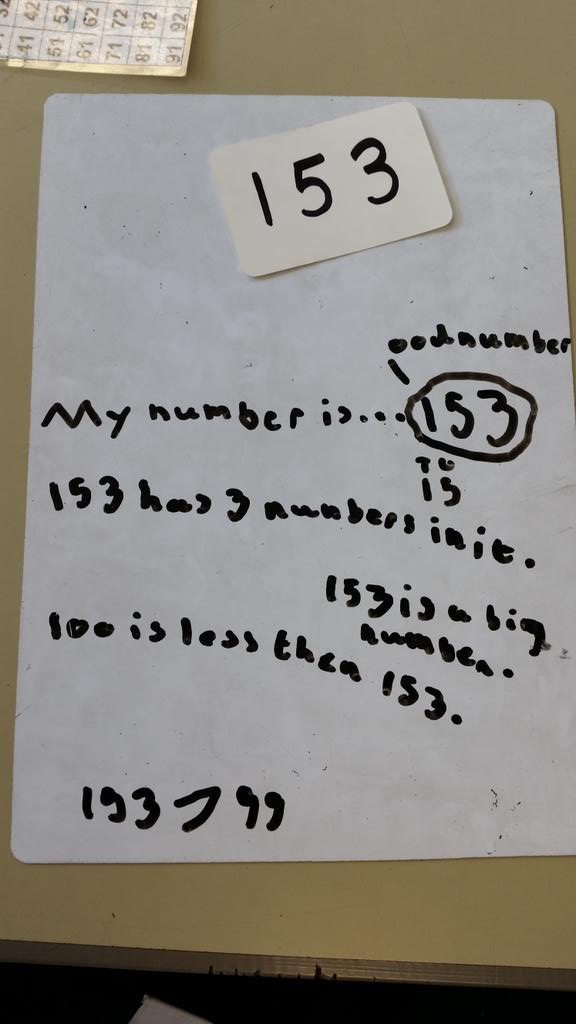 41 42
51 52
61 62
71 72
81 82
91 92
153
oodnumber
My number is...153
T U
15
153 has 3 numbers in it.
153 is a big
number.
100 is less then 153.
153 > 99